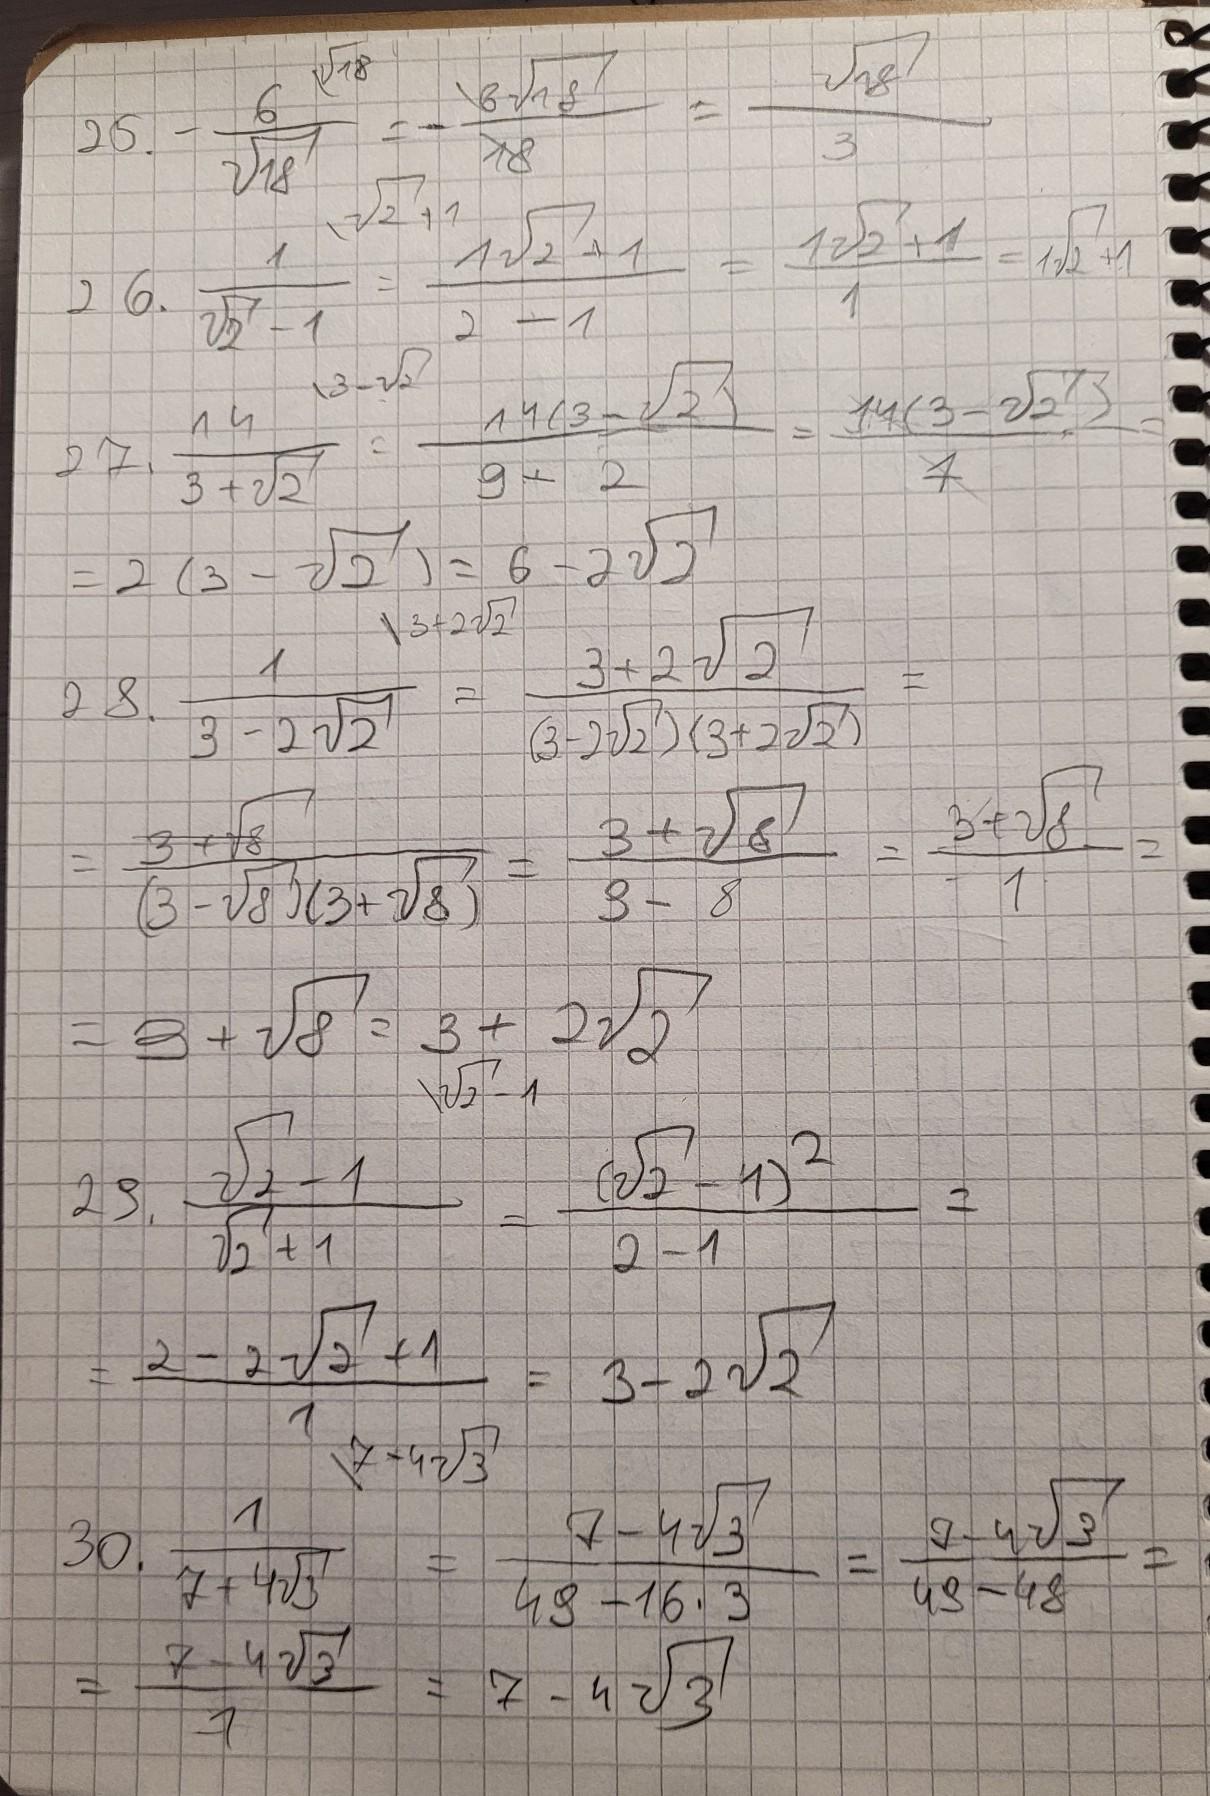 25. - 6/√18 \√18 = - 6√18/18 = √18/3
26. 1/(√2 - 1) \√2 + 1 = (1√2 + 1)/(2 - 1) = (1√2 + 1)/1 = 1√2 + 1
27. 14/(3 + √2) \3 - √2 = 14(3 - √2)/(9 - 2) = 14(3 - √2)/7 =
= 2(3 - √2) = 6 - 2√2
28. 1/(3 - 2√2) \3 + 2√2 = (3 + 2√2)/((3 - 2√2)(3 + 2√2)) =
= (3 + √8)/((3 - √8)(3 + √8)) = (3 + √8)/(9 - 8) = (3 + √8)/1 =
= 3 + √8 = 3 + 2√2
29. (√2 - 1)/(√2 + 1) \√2 - 1 = (√2 - 1)²/(2 - 1) =
= (2 - 2√2 + 1)/1 = 3 - 2√2
30. 1/(7 + 4√3) \7 - 4√3 = (7 - 4√3)/(49 - 16·3) = (7 - 4√3)/(49 - 48) =
= (7 - 4√3)/1 = 7 - 4√3